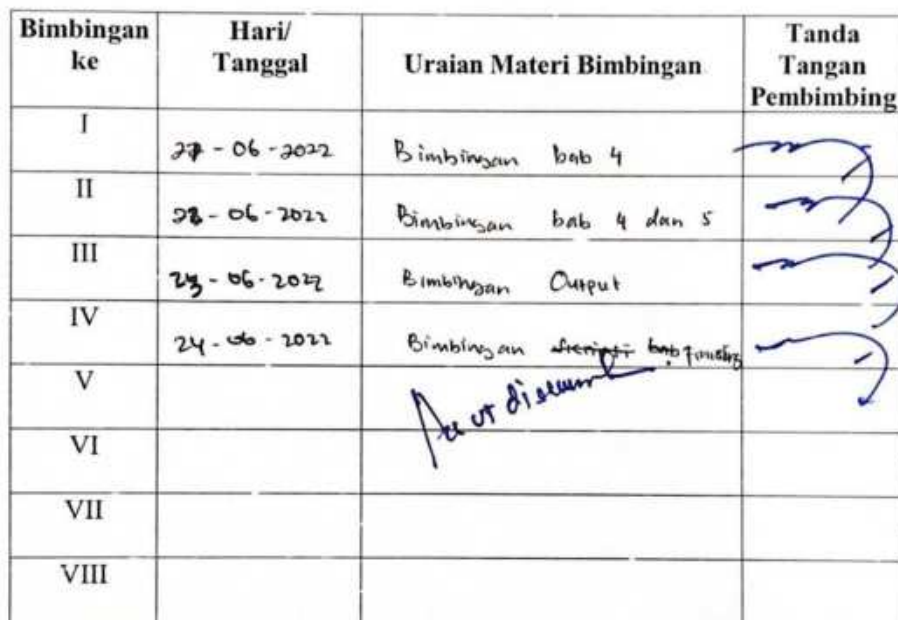 Bimbingan ke Hari/ Tanggal Uraian Materi Bimbingan Tanda Tangan Pembimbing
I 27 - 06 - 2022 Bimbingan bab 4
II 28 - 06 - 2022 Bimbingan bab 4 dan 5
III - 06 - 2022 Bimbingan Output
IV 24 - 06 - 2022 Bimbingan
V
VI
VII
VIII